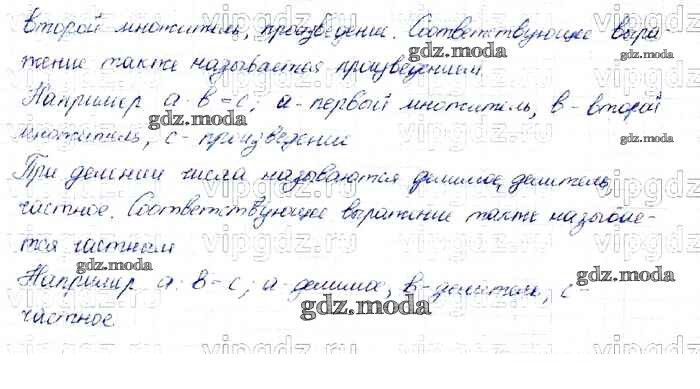 второй множитель, произведение. Соответствующее выра-
жение также называется произведением.
Например a · b = c; a - первый множитель, b - второй
множитель, c - произведение
При делении числа называются делимое, делитель,
частное. Соответствующее выражение также называе-
тся частным
Например a : b = c; a - делимое, b - делитель, c
частное
gdz.moda
gdz.moda
gdz.moda
gdz.moda
gdz.moda
gdz.moda
gdz.moda
gdz.moda
vipgdz.ru